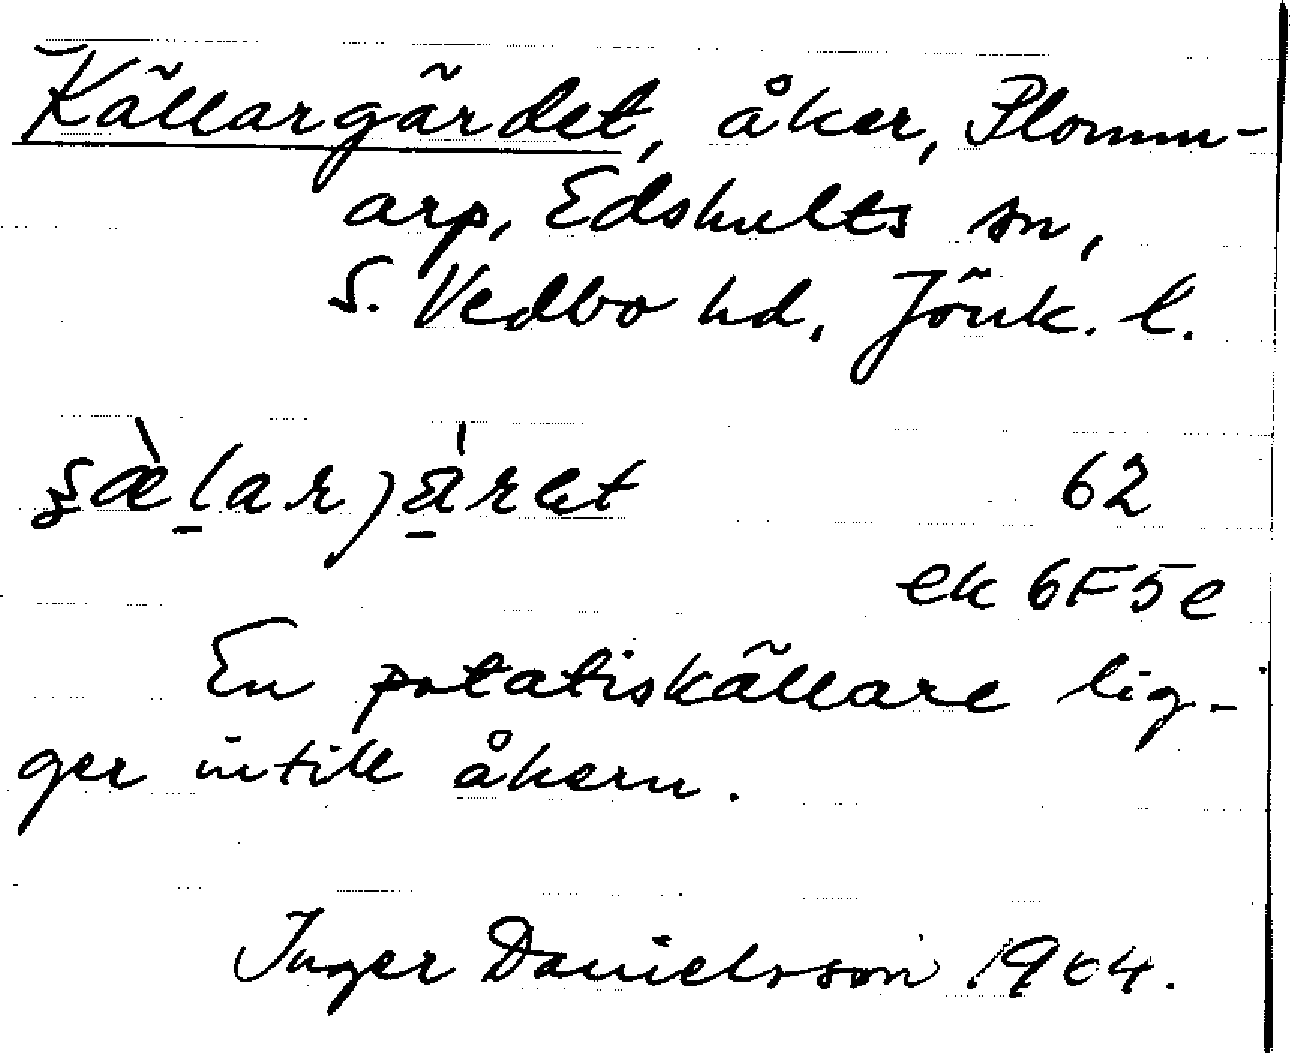 Källargärdet, åker, Plomm-
arp, Edshults sn,
S. Vedbo hd, Jönk. l.
62
ek 6F5e
En potatiskällare lig-
ger intill åkern.
Inger Danielsson 1964.